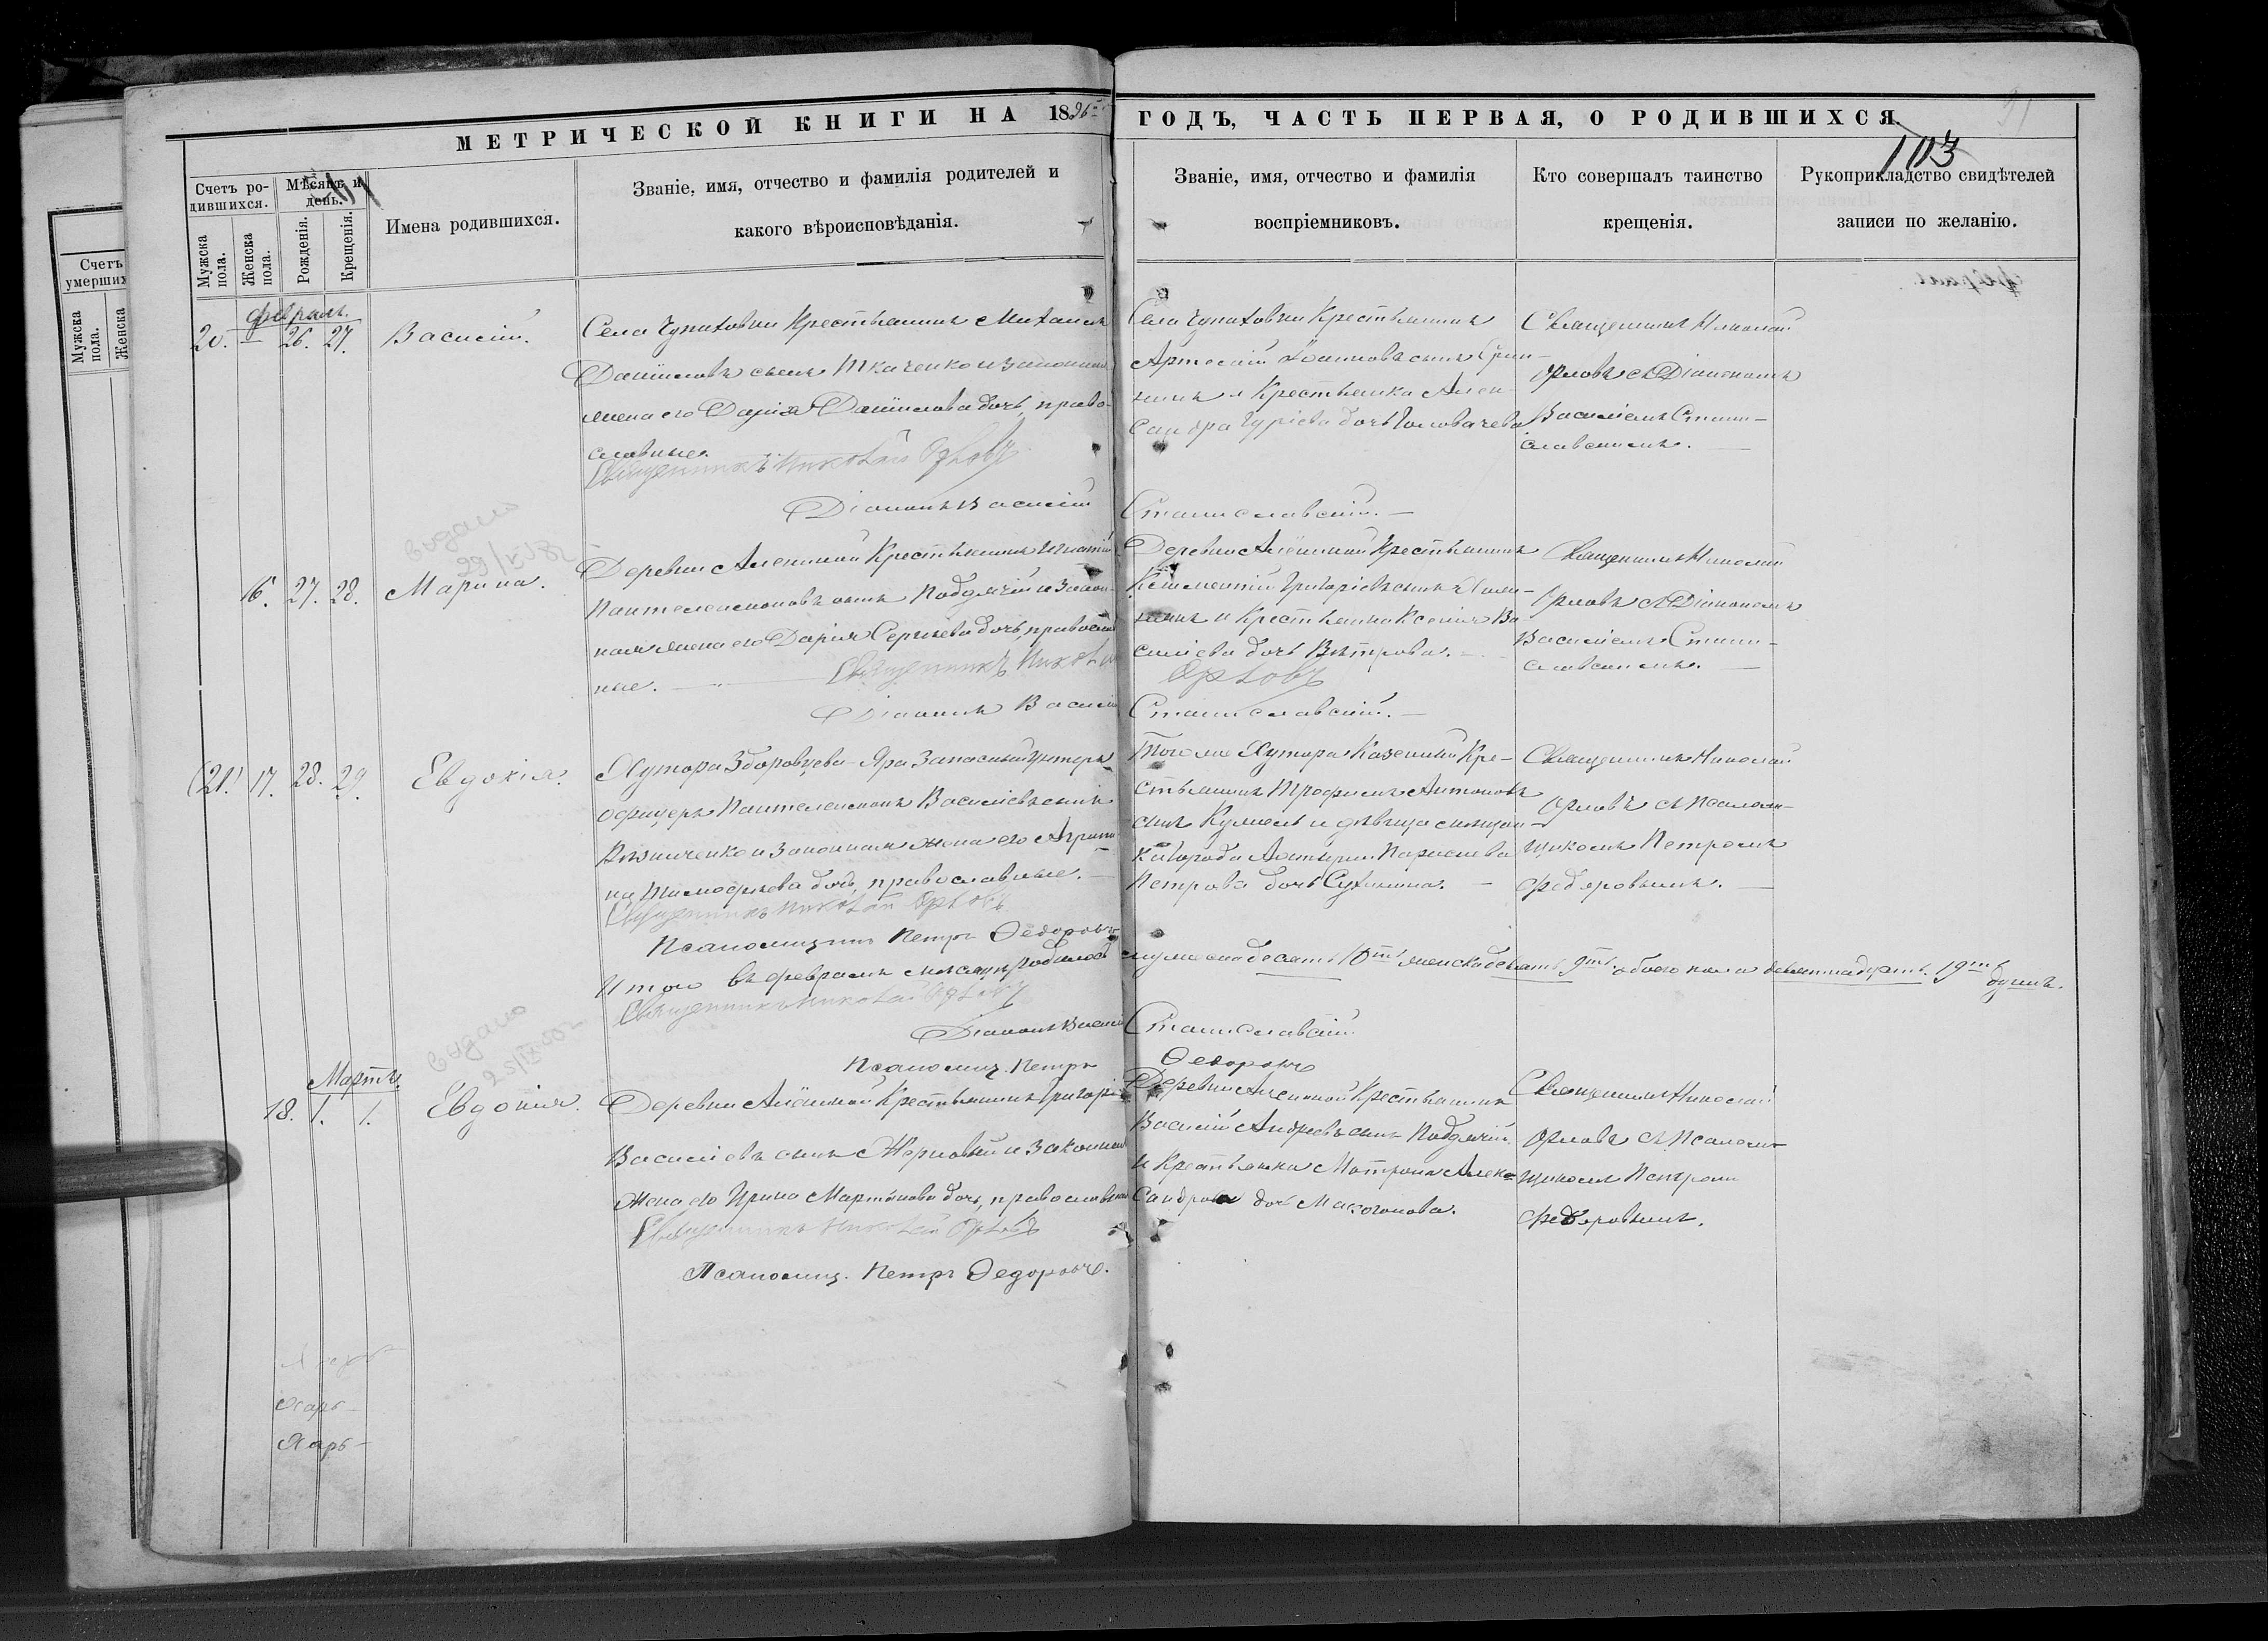 МЕТРИЧЕСКОЙ КНИГИ НА 1896
ГОДЪ, ЧАСТЬ ПЕРВАЯ, О РОДИВШИХСЯ.
103
Счетъ родившихся.
Мѣсяцъ и день.
Мужска пола.
Женска пола.
Рожденія.
Крещенія.
Имена родившихся.
Званіе, имя, отчество и фамилія родителей и
какого вѣроисповѣданія.
Званіе, имя, отчество и фамилія
воспріемниковъ.
Кто совершалъ таинство
крещенія.
Рукоприкладство свидѣтелей
записи по желанію.
Счетъ
умерших
Мужска пола.
Женска
февраль.
20. 26. 27. Василій.
Села Чупаховки Крестьянинъ Михаилъ
Даніиловъ сынъ Ткаченко и законная
жена его Дарія Даніилова дочь, право-
славные.
Священникъ Николай Орловъ
Діаконъ Василій Станиславскій.
Села Чупаховки Крестьянинъ
и Крестьянка Алек-
сандра Гуріева дочь Головачева
Священникъ Николай
Орловъ съ Діакономъ
Василіемъ Стани-
славскимъ.
выдано
16. 27. 28. Марина.
Деревни Алешиной Крестьянинъ Игнатій
Пантелеимоновъ сынъ Поддячій и закон-
ная жена его Дарія Сергіева дочь, православ
ные.
Священникъ Николай Орловъ
Діаконъ Василій Станиславскій.
Деревни Алёшиной Крестьянинъ
Климентій Григоріевъ сынъ
и Крестьянка Ксенія Ва
силіева дочь Вѣтрова.
Священникъ Николай
Орловъ съ Діакономъ
Василіемъ Стани-
славскимъ.
(21) 17. 28. 29. Евдокія.
Хутора Здоровцева-Яра Запасный унтеръ
офицеръ Пантелеимонъ Василіевъ сынъ
и законная жена его Агрипи-
на Тимофеева дочь, православные.
Священникъ Николай Орловъ
Псаломщикъ Петръ Ѳедоровъ
Того же Хутора Казенный Кре-
стьянинъ Трофимъ Антоновъ
сынъ и дѣвица мѣщан
ка города Ахтырки Параскева
Петрова дочь Сухинина.
Священникъ Николай
Орловъ съ Псалом-
щикомъ Петромъ
Федоровымъ.
Итого въ февралѣ мѣсяцѣ родилось мужеска десять 10ть женска девять 9ть обоего пола девятнадцать 19ть душъ.
Священникъ Николай Орловъ
Діаконъ Василій Станиславскій
Псаломщ. Петръ Ѳедоровъ
выдано
Мартъ.
18. 1. 1. Евдокія.
Деревни Алёшиной Крестьянинъ Григорій
Василіевъ сынъ Жерновый и законная
жена его Ирина Мартынова дочь, православные
Священникъ Николай Орловъ
Псаломщ. Петръ Ѳедоровъ.
Деревни Алешиной Крестьянинъ
Василій Андреевъ сынъ Поддячій
и Крестьянка Матрона Алек-
сандрова дочь Макогонова.
Священникъ Николай
Орловъ съ Псалом-
щикомъ Петромъ
Федоровымъ.
Харь-
Харь-